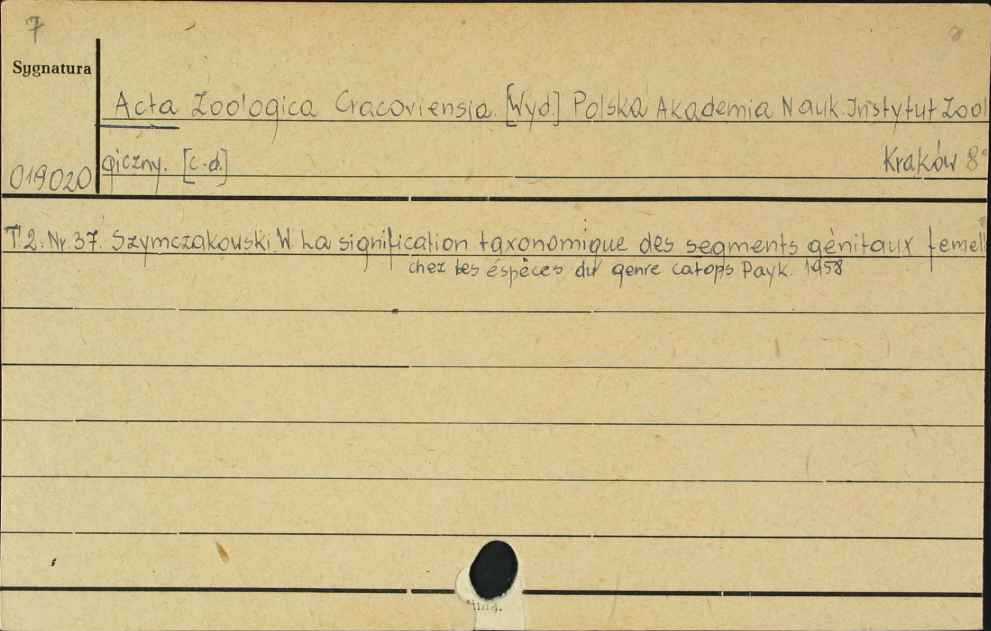 7
8
Sygnatura
Acta Zoologica Cracoviensia. [Wyd.] Polska Akademia Nauk. Instytut Zool
019020
giczny. [c.d.]
Kraków 8°
T.2. Nr 37. Szymczakowski W. La signification taxonomique des segments génitaux femell
chez les éspèces du genre catops Payk. 1958